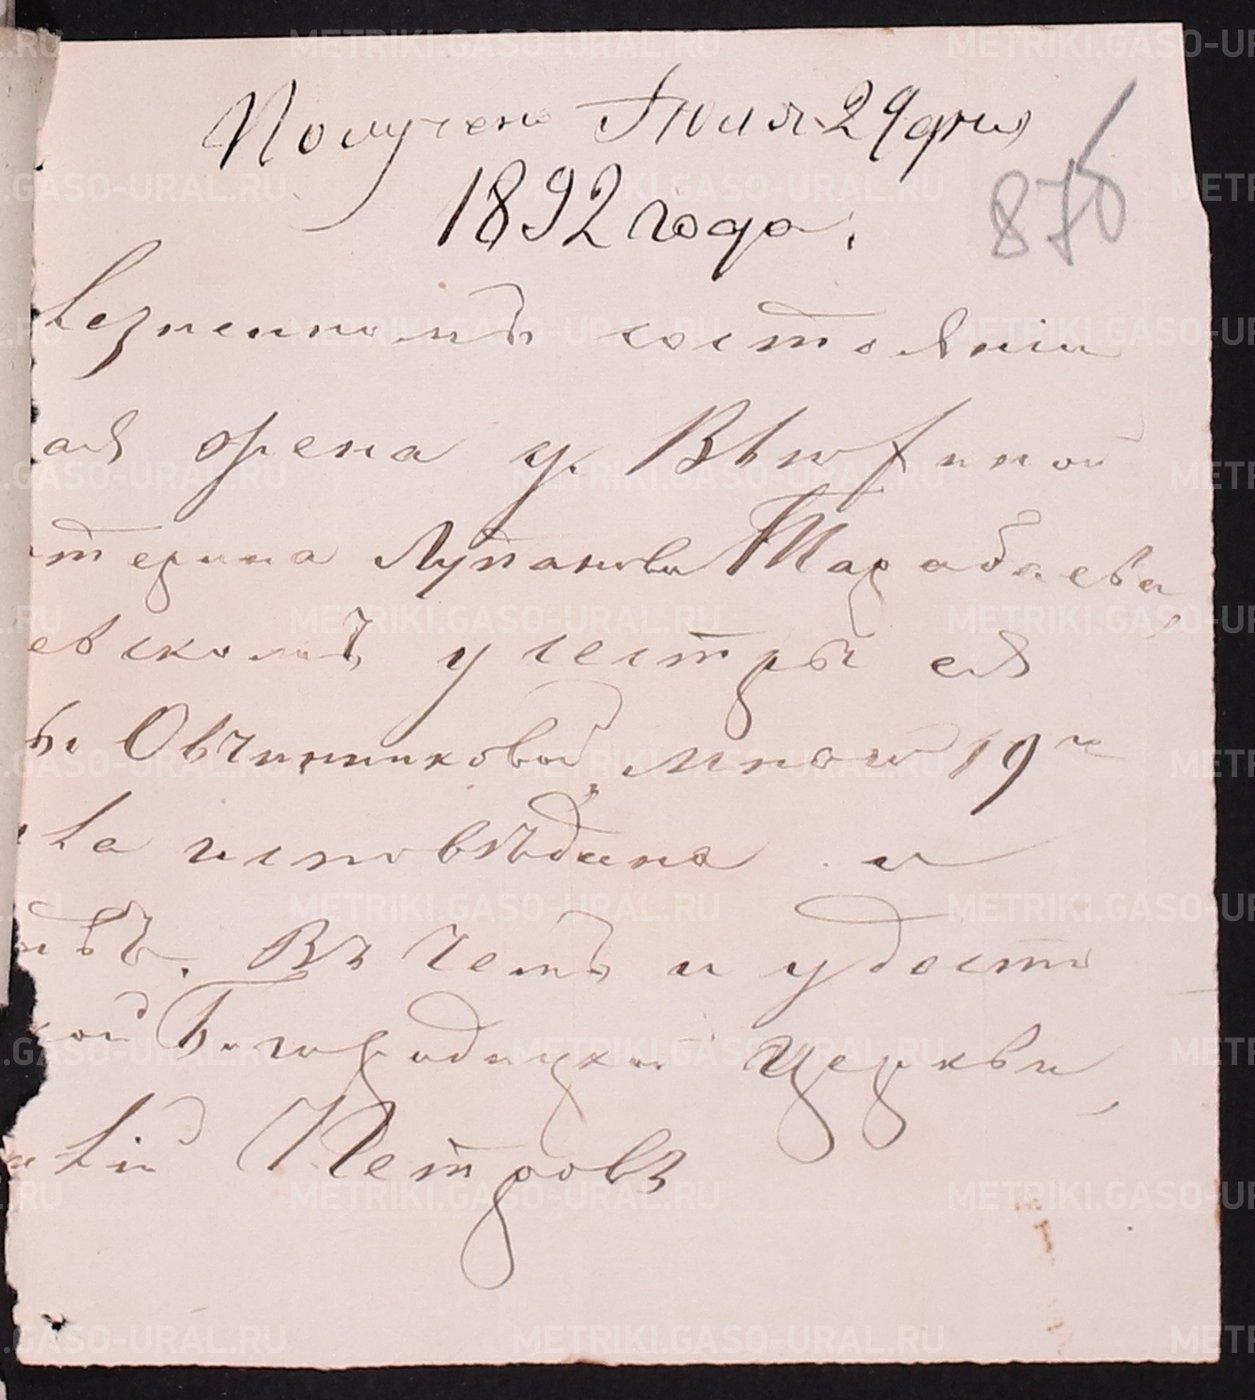 Получено Июля 29 дня
876
1892 года.
лезненномъ состоянiи
ая жена г.
терина Лупанова Тарабаева,
евскомъ у сестры ея
ы Овчинниковой, мною 19 го
ва исповѣдана и
Въ чемъ и удосто
кой Богородицкой церкви,
Петровъ
METRIKI.GASO-URAL.RU